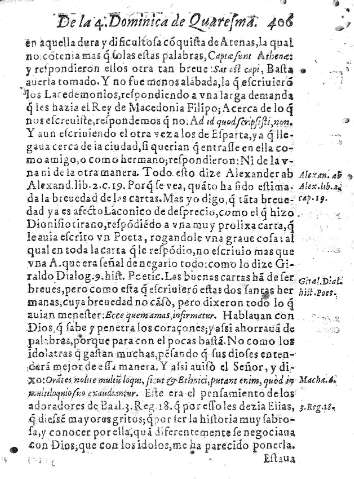 De la 4. Dominica de Quaresma. 406
en aquella dura y dificultosa cõquista de Atenas, la qual
no cõtenia mas q̃ solas estas palabras, Captæ sunt Athenæ:
y respondieron ellos otra tan breue: Sat est capi, Basta
auerla tomado. Y no fue menos alabada, la q̃ escriuierõ
los Lacedemonios, respondiendo a vna larga demanda
q̃ les hazia el Rey de Macedonia Filipo; Acerca de lo q̃
nos escreuiste, respondemos q̃ no. Ad id quod scripsisti, non.
Y aun escriuiendo el otra vez a los de Esparta, ya q̃ lle-
gaua cerca de la ciudad, si querian q̃ entrasse en ella co-
mo amigo, o como hermano; respondieron: Ni de la v-
na ni de la otra manera. Todo esto dize Alexander ab
Alexand. lib. 2. c. 19. Porq̃ se vea, quãto ha sido estima-
da la breuedad de las cartas. Mas yo digo, q̃ tãta breue-
dad ya es afecto Laconico de desprecio, como el q̃ hizo
Dionisio tirano, respõdiẽdo a vna muy prolixa carta, q̃
le auia escrito vn Poeta, rogandole vna graue cosa: al
qual en toda la carta q̃ le respõdio, no escriuio mas que
vna A. que era señal de negarlo todo: como lo dize Gi-
raldo Dialog. 9. hist. Poetic. Las buenas cartas hã de ser
breues, pero como esta q̃ escriuierõ estas dos santas her
manas, cuya breuedad no cãsò, pero dixeron todo lo q̃
auian menester: Ecce quem amas, infirmatur. Hablauan con
Dios, q̃ sabe y penetra los coraçones; y assi ahorrauã de
palabras, porque para con el pocas bastã. No como los
idolatras q̃ gastan muchas, pẽsando q̃ sus dioses enten-
derà mejor de essa manera. Y assi auisò el Señor, y di-
xo: Orãtes nolite multũ loqui, sicut & Ethnici, putant enim, quòd in
multiloquio suo exaudiantur. Este era el pensamiento de los
adoradores de Baal. 3. Reg. 18. q̃ por esso les dezia Elias,
q̃ diessẽ mayores gritos; q̃ por ser la historia muy sabro-
sa, y conocer por ella, quã diferentemente se negociaua
con Dios, que con los idolos, me ha parecido ponerla.
Estaua
Alexan. ab
Alex. lib. 2.
cap. 19.
Giral. Dial.
hist. Poet.
Matth. 6.
3. Reg. 18.